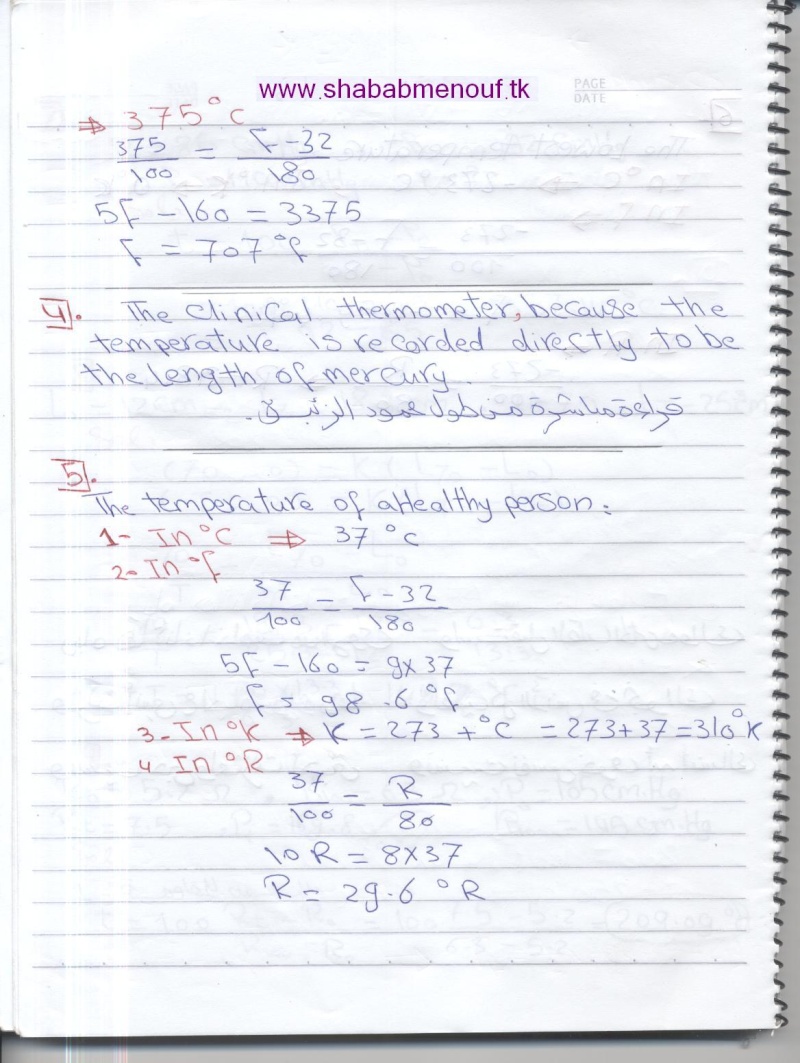 www.shababmenouf.tk
PAGE
DATE
⇒ 375°C
375/100 = F-32/180
5F - 160 = 3375
F = 707°F
4. The Clinical thermometer, because the
temperature is recorded directly to be
the Length of mercury.
قراءة مباشرة من طول عمود الزئبق.
5.
The temperature of a Healthy person:
1- In °C ⇒ 37 °C
2- In °F
37/100 = F-32/180
5F - 160 = 9x37
F = 98.6 °F
3- In °K ⇒ K = 273 + °C = 273+37=310°K
4 In °R
37/100 = R/80
10R = 8x37
R = 29.6 °R